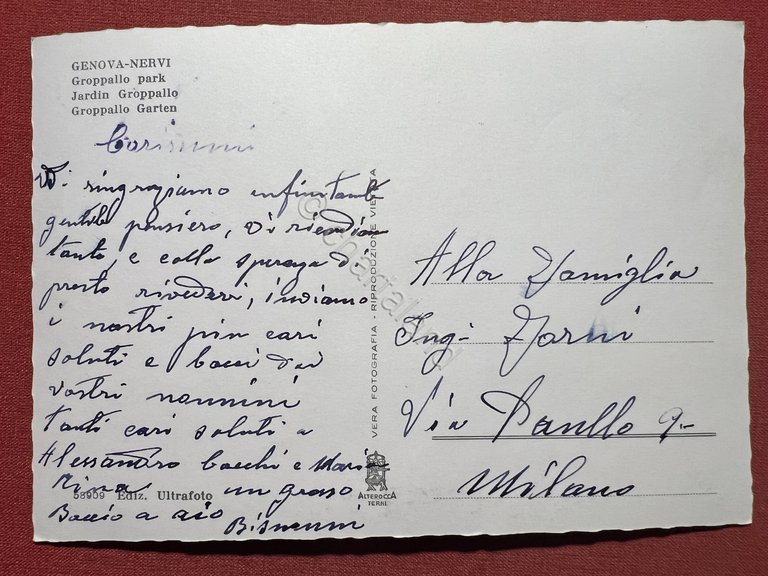 GENOVA-NERVI
Groppallo park
Jardin Groppallo
Groppallo Garten
Carissimi
Vi ringraziamo
gentile pensiero, Vi
tanto, e colla speranza di
presto rivedervi, inviamo
i nostri più cari
saluti e bacci dai
vostri nonnini
tanti cari saluti a
Alessandro bacchi e Maria
un grosso
Baccio a
58909 Ediz. Ultrafoto
VERA FOTOGRAFIA - RIPRODUZIONE VIETATA
ALTEROCCA
TERNI
Alla Famiglia
Ing. Forni
Via 9-
Milano